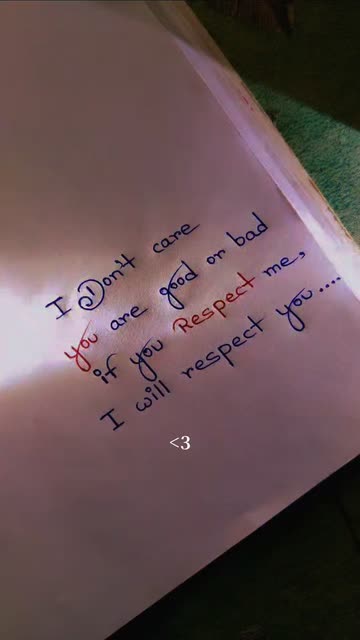 I Don't care
you are good or bad
if you Respect me,
I will respect you....
<3